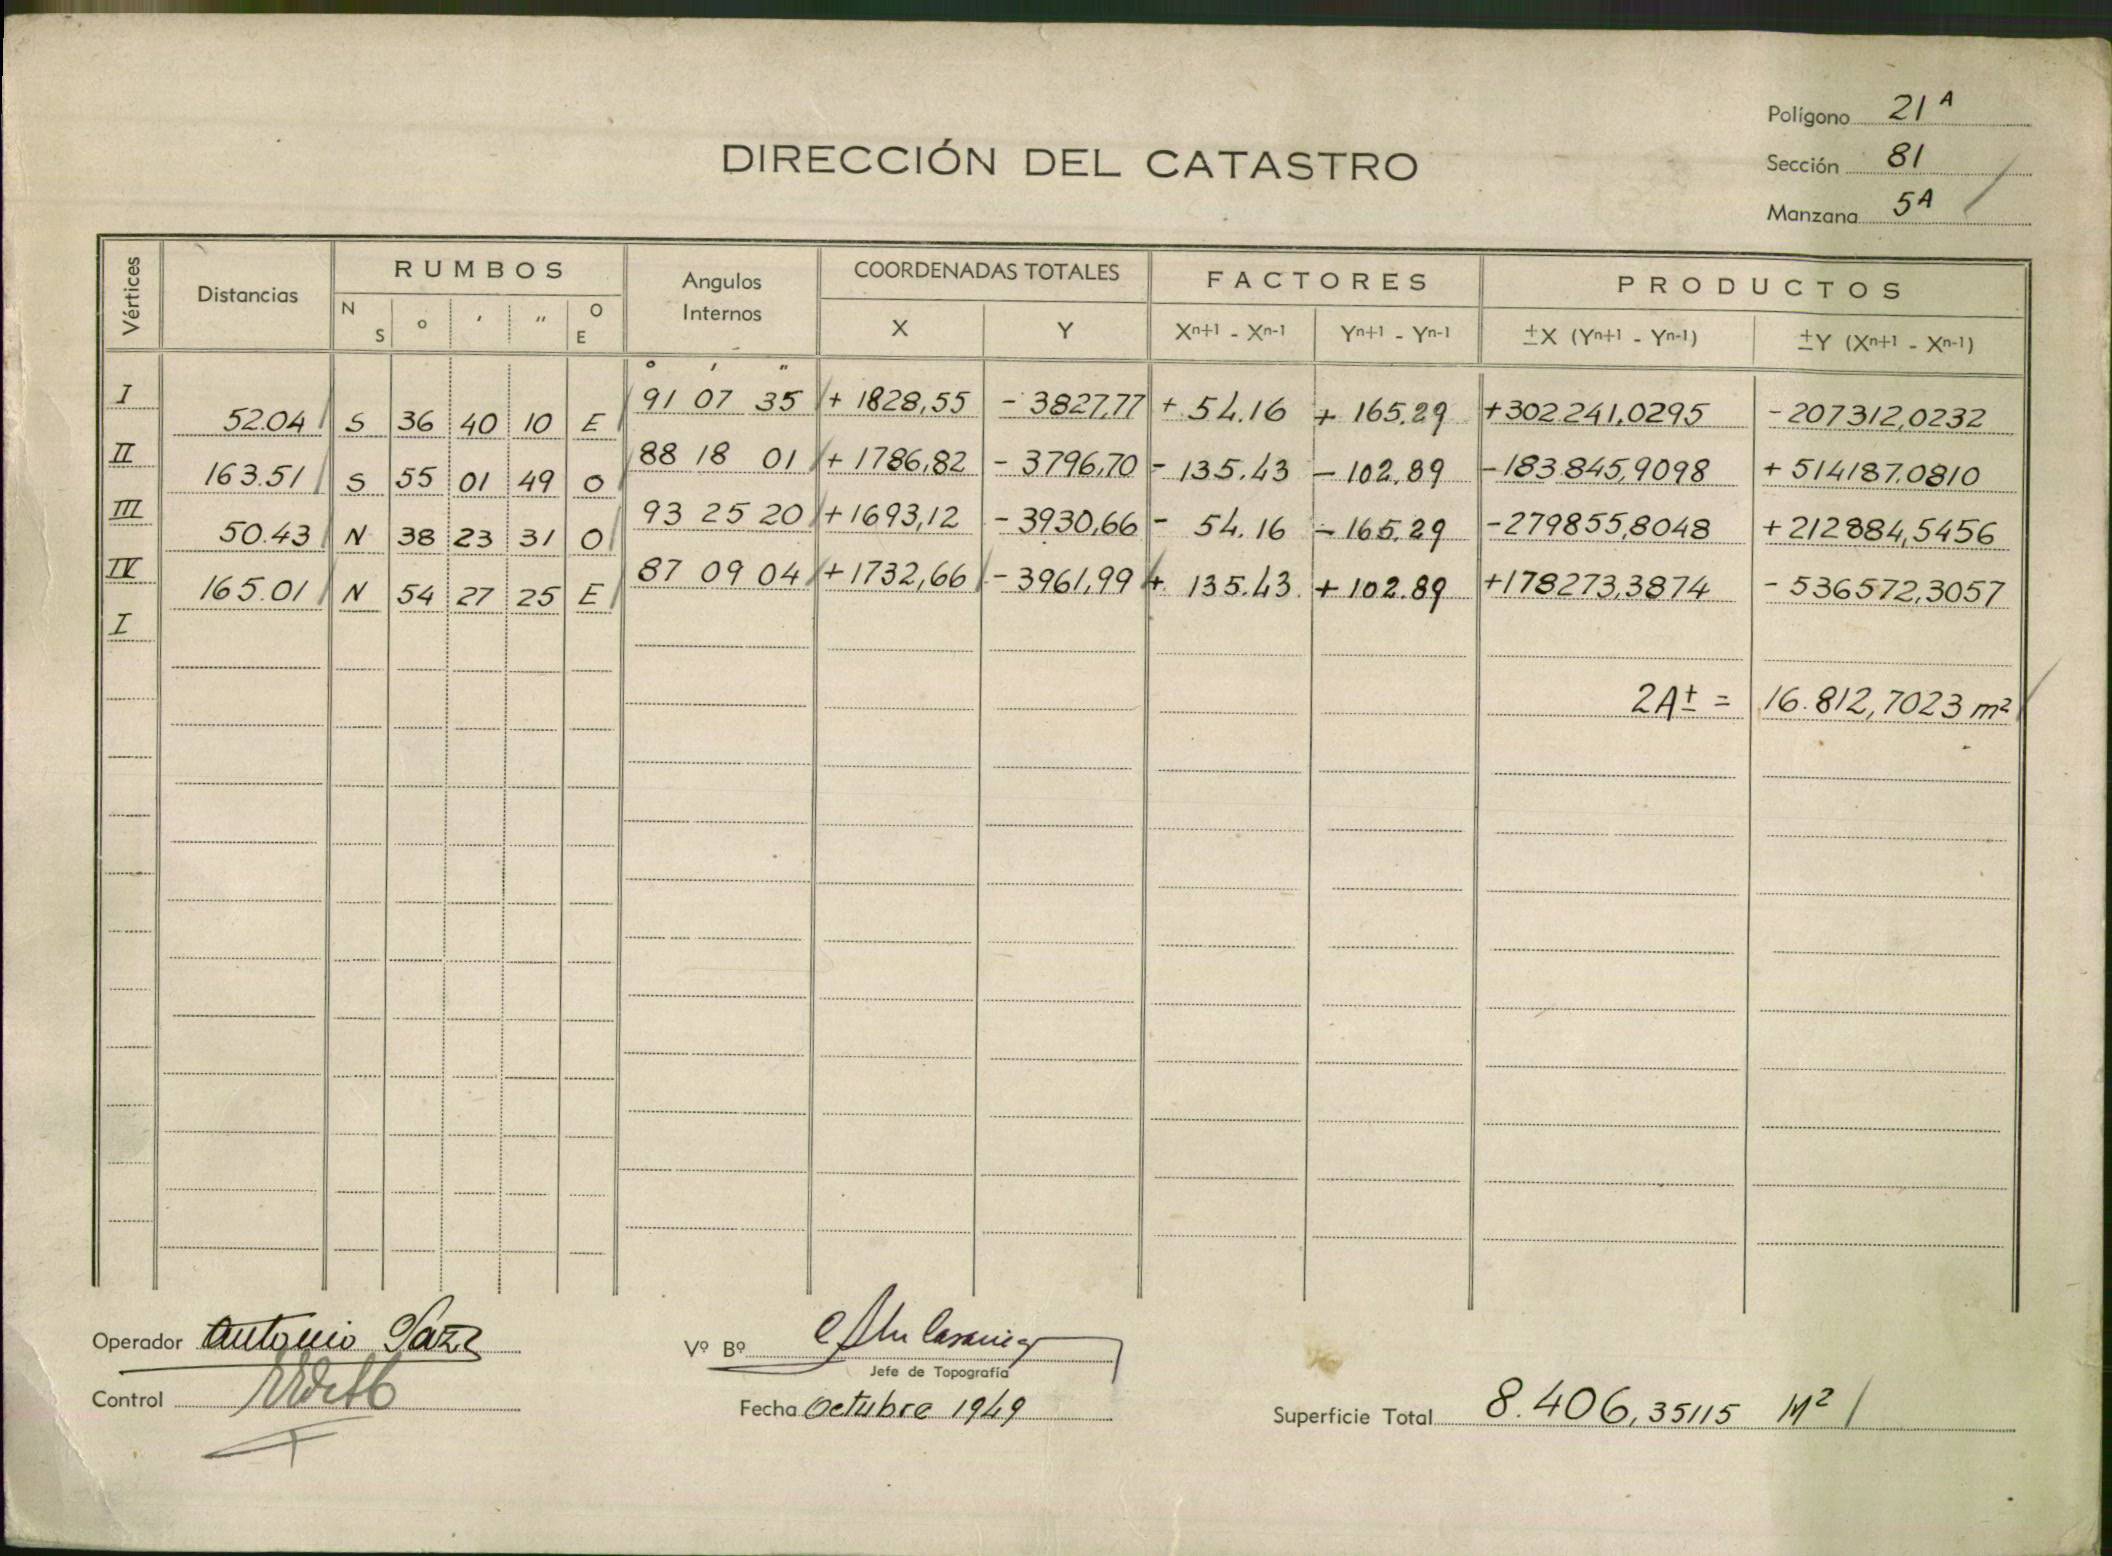 Polígono 21 A
Sección 81
Manzana 5A
DIRECCIÓN DEL CATASTRO
Vértices Distancias RUMBOS Angulos Internos COORDENADAS TOTALES FACTORES PRODUCTOS
N S ° ' " O E X Y Xn+1 - Xn-1 Yn+1 - Yn-1 ±X (Yn+1 - Yn-1) ±Y (Xn+1 - Xn-1)
° ' "
I 91 07 35 + 1828,55 - 3827,77 + 54.16 + 165.29 +302 241,0295 - 207312,0232
52.04 S 36 40 10 E
II 88 18 01 + 1786,82 - 3796,70 - 135.43 - 102.89 -183 845,9098 + 514187.0810
163.51 S 55 01 49 O
III 93 25 20 +1693,12 - 3930,66 - 54.16 - 165.29 -279855,8048 + 212884,5456
50.43 N 38 23 31 O
IV 87 09 04 +1732,66 - 3961,99 + 135.43 + 102.89 +178273,3874 - 536572,3057
165.01 N 54 27 25 E
I
2A± = 16.812,7023 m²
Operador Antonio
Vº Bº
Jefe de Topografía
Control
Fecha Octubre 1949
Superficie Total 8.406,35115 M²